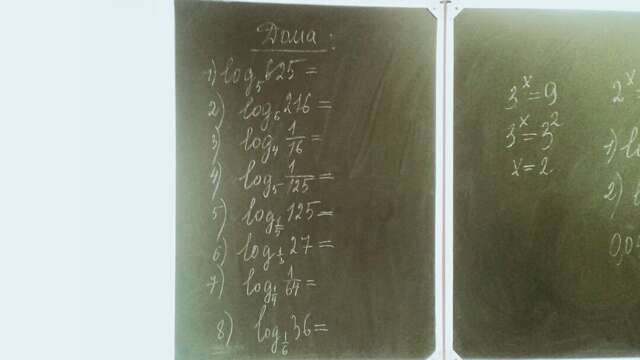 Дома:
1) log₅625=
2) log₆216=
3) log₄ 1/16=
4) log₅ 1/125=
5) log_1/5 125=
6) log_1/3 27=
7) log_1/4 1/64=
8) log_1/6 36=
3ˣ=9
3ˣ=3²
x=2
2ˣ
1) l
2)
0,0